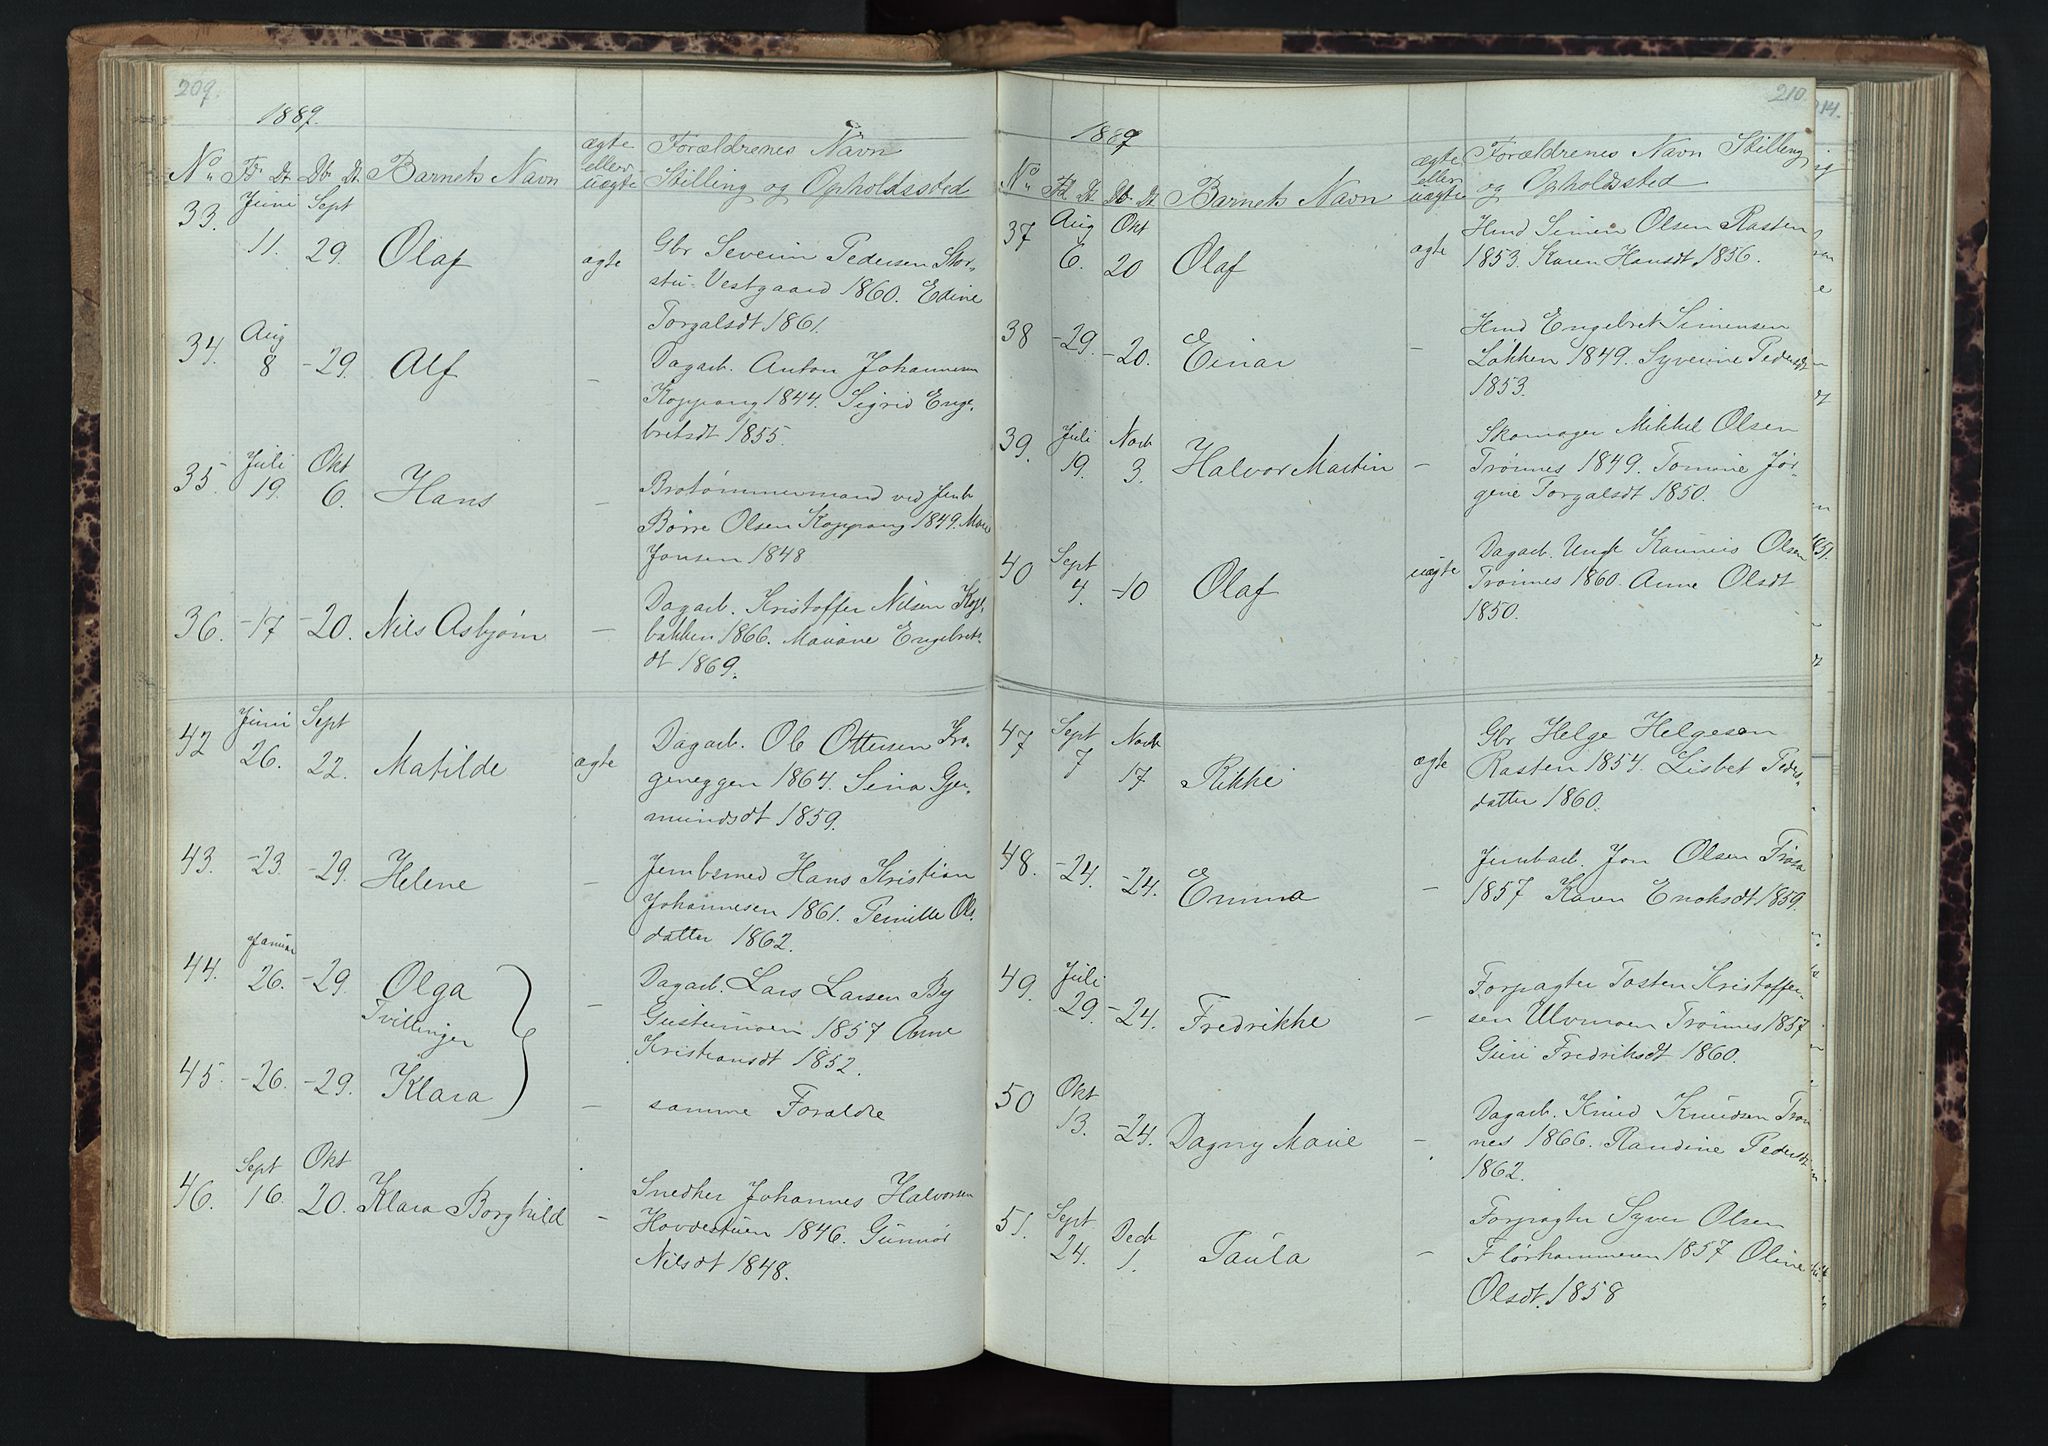 209.
1889.
No Fd Dt. Db Dt. Barnets Navn ægte eller uægte Forældrenes Navn Stilling og Opholdssted
33. Juni 11. Sept 29. Olaf ægte Gbr Severin Pedersen Stor-
stu-Vestgaard 1860. Edine
Torgalsdt 1861.
34. Aug 8 -29. Alf - Dagarb. Anton Johannesen
Koppang 1844. Sigrid Enge-
bretsdt 1855.
35. Juli 19. Okt 6. Hans - Brotømmermand ved Jernb
Børre Olsen Koppang 1849. Marie
Jonsen 1848
36. -17 -20. Nils Asbjørn - Dagarb. Kristoffer Nilsen
bakken 1866. Mariane Engebrets-
dt 1869.
42 Juni 26. Sept 22. Matilde ægte Dagarb. Ole Ottersen Kro-
geneggen 1864. Sina Gjer-
mundsdt 1859.
43. -23. -29. Helene - Jernbsmed Hans Kristian
Johannesen 1861. Pernille Ols-
datter 1862.
44. Januar 26. -29. Olga - Dagarb. Lars Larsen By
Tvillinger
Gustumoen 1857 Anne
Kristiansdt 1852.
45. -26. -29. Klara - samme Forældre
46. Sept 16. Okt 20. Klara Borghild - Snedker Johannes Halvorsen
Hovdestuen 1846. Gunnor
Nilsdt 1848.
210.
1889
No Fd Dt. Db Dt. Barnets Navn ægte eller uægte Forældrenes Navn Stilling og Opholdssted
37 Aug 6. Okt 20 Olaf ægte Hmd Simen Olsen Rasten
1853. Karen Hansdt 1856.
38 -29. -20. Einar - Hmd Engebret Simensen
Løkken 1849. Syverine Pedersdt
1853.
39. Juli 19. Novb 3. Halvor Martin - Skomager Mikkel Olsen
Trønnes 1849. Tomine Jør-
gine Torgalsdt 1850.
40 Sept 4. -10 Olaf uægte Dagarb. Ungk Olsen
Trønnes 1860. Anne Olsdt
1850.
47 Sept 7 Novb 17 Rikke ægte Gbr Helge Helgesen
Rasten 1854. Lisbet Peders-
datter 1860.
48. -24. -24. Emma - Jernbarb. Jon Olsen
1857 Karen Enoksdt 1859.
49. Juli 29. -24. Fredrikke - Forpagter Tosten Kristoffer-
sen Ulvmoen Trønnes 1857
Guri Fredriksdt 1860.
50 Okt 13. -24. Dagny Marie - Dagarb. Knud Knudsen Trøn
nes 1866. Randine Pedersdt
1862.
51. Sept 24. Decb 1. Paula - Forpagter Syver Olsen
Florhammeren 1857 Oline
Olsdt. 1858
214.